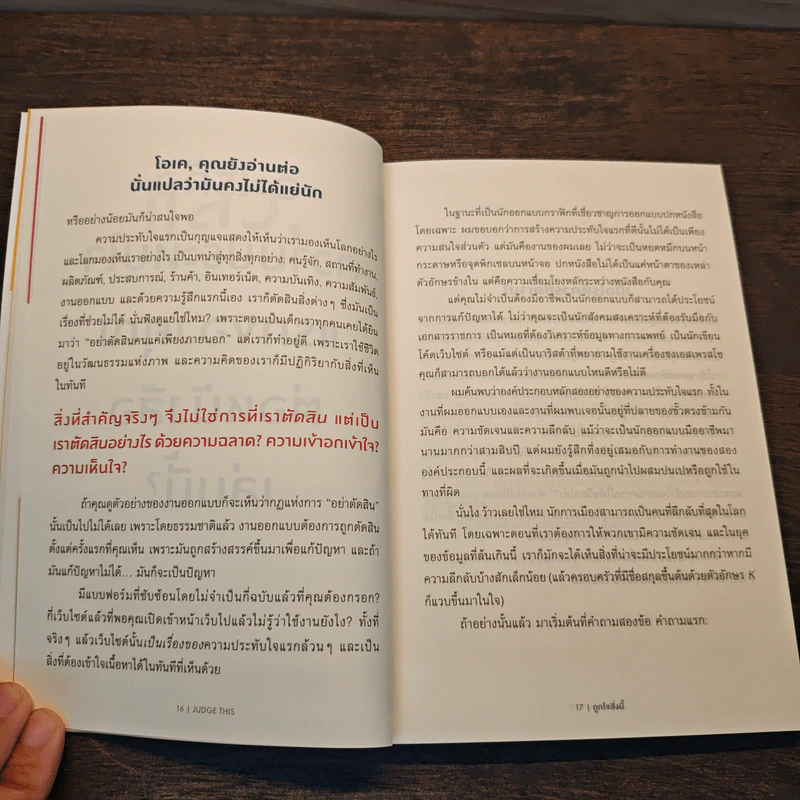 โอเค, คุณยังอ่านต่อ
นั่นแปลว่ามันคงไม่ได้แย่นัก
หรืออย่างน้อยมันก็น่าสนใจพอ
ความประทับใจแรกเป็นกุญแจแสดงให้เห็นว่าเรามองเห็นโลกอย่างไร
และโลกมองเห็นเราอย่างไร เป็นบทนำสู่ทุกสิ่งทุกอย่าง: คนรู้จัก, สถานที่ทำงาน,
ผลิตภัณฑ์, ประสบการณ์, ร้านค้า, อินเทอร์เน็ต, ความบันเทิง, ความสัมพันธ์,
งานออกแบบ และด้วยความรู้สึกแรกนี้เอง เราก็ตัดสินสิ่งต่างๆ ซึ่งมันเป็น
เรื่องที่ช่วยไม่ได้ นั่นฟังดูแย่ใช่ไหม? เพราะตอนเป็นเด็กเราทุกคนเคยได้ยิน
มาว่า "อย่าตัดสินคนแค่เพียงภายนอก" แต่เราก็ทำอยู่ดี เพราะเราใช้ชีวิต
อยู่ในวัฒนธรรมแห่งภาพ และความคิดของเราก็มีปฏิกิริยากับสิ่งที่เห็น
ในทันที
สิ่งที่สำคัญจริงๆ จึงไม่ใช่การที่เราตัดสิน แต่เป็น
เราตัดสินอย่างไร ด้วยความฉลาด? ความเข้าอกเข้าใจ?
ความเห็นใจ?
ถ้าคุณดูตัวอย่างของงานออกแบบก็จะเห็นว่ากฎแห่งการ "อย่าตัดสิน"
นั้นเป็นไปไม่ได้เลย เพราะโดยธรรมชาติแล้ว งานออกแบบต้องการถูกตัดสิน
ตั้งแต่ครั้งแรกที่คุณเห็น เพราะมันถูกสร้างสรรค์ขึ้นมาเพื่อแก้ปัญหา และถ้า
มันแก้ปัญหาไม่ได้... มันก็จะเป็นปัญหา
มีแบบฟอร์มที่ซับซ้อนโดยไม่จำเป็นกี่ฉบับแล้วที่คุณต้องกรอก?
กี่เว็บไซต์แล้วที่พอคุณเปิดเข้าหน้าเว็บไปแล้วไม่รู้ว่าใช้งานยังไง? ทั้งที่
จริงๆ แล้วเว็บไซต์นั้นเป็นเรื่องของความประทับใจแรกล้วนๆ และเป็น
สิ่งที่ต้องเข้าใจเนื้อหาได้ในทันทีที่เห็นด้วย
16 | JUDGE THIS
ในฐานะที่เป็นนักออกแบบกราฟิกที่เชี่ยวชาญการออกแบบปกหนังสือ
โดยเฉพาะ ผมขอบอกว่าการสร้างความประทับใจแรกที่ดีนั้นไม่ได้เป็นเพียง
ความสนใจส่วนตัว แต่มันคืองานของผมเลย ไม่ว่าจะเป็นหยดหมึกบนหน้า
กระดาษหรือจุดพิกเซลบนหน้าจอ ปกหนังสือไม่ได้เป็นแค่หน้าตาของเหล่า
ตัวอักษรข้างใน แต่คือความเชื่อมโยงหลักระหว่างหนังสือกับคุณ
แต่คุณไม่จำเป็นต้องมีอาชีพเป็นนักออกแบบก็สามารถได้ประโยชน์
จากการแก้ปัญหาได้ ไม่ว่าคุณจะเป็นนักสังคมสงเคราะห์ที่ต้องรับมือกับ
เอกสารราชการ เป็นหมอที่ต้องวิเคราะห์ข้อมูลทางการแพทย์ เป็นนักเขียน
โค้ดเว็บไซต์ หรือแม้แต่เป็นบาริสต้าที่พยายามใช้งานเครื่องชงเอสเพรสโซ
คุณก็สามารถบอกได้แล้วว่างานออกแบบไหนดีหรือไม่ดี
ผมค้นพบว่าองค์ประกอบหลักสองอย่างของความประทับใจแรก ทั้งใน
งานที่ผมออกแบบเองและงานที่ผมพบเจอนั้นอยู่ที่ปลายของขั้วตรงข้ามกัน
มันคือ ความชัดเจนและความลึกลับ แม้ว่าจะเป็นนักออกแบบมืออาชีพมา
นานมากกว่าสามสิบปี แต่ผมยังรู้สึกทึ่งอยู่เสมอกับการทำงานของสอง
องค์ประกอบนี้ และผลที่จะเกิดขึ้นเมื่อมันถูกนำไปผสมปนเปหรือถูกใช้ใน
ทางที่ผิด
นั่นไง ว้าวเลยใช่ไหม นักการเมืองสามารถเป็นคนที่ลึกลับที่สุดในโลก
ได้ทันที โดยเฉพาะตอนที่เราต้องการให้พวกเขามีความชัดเจน และในยุค
ของข้อมูลที่ล้นเกินนี้ เราก็มักจะได้เห็นสิ่งที่น่าจะมีประโยชน์มากกว่าหากมี
ความลึกลับบ้างสักเล็กน้อย (แล้วครอบครัวที่มีชื่อสกุลขึ้นต้นด้วยตัวอักษร K
ก็แวบขึ้นมาในใจ)
ถ้าอย่างนั้นแล้ว มาเริ่มต้นที่คำถามสองข้อ คำถามแรก:
17 | ถูกใจสิ่งนี้